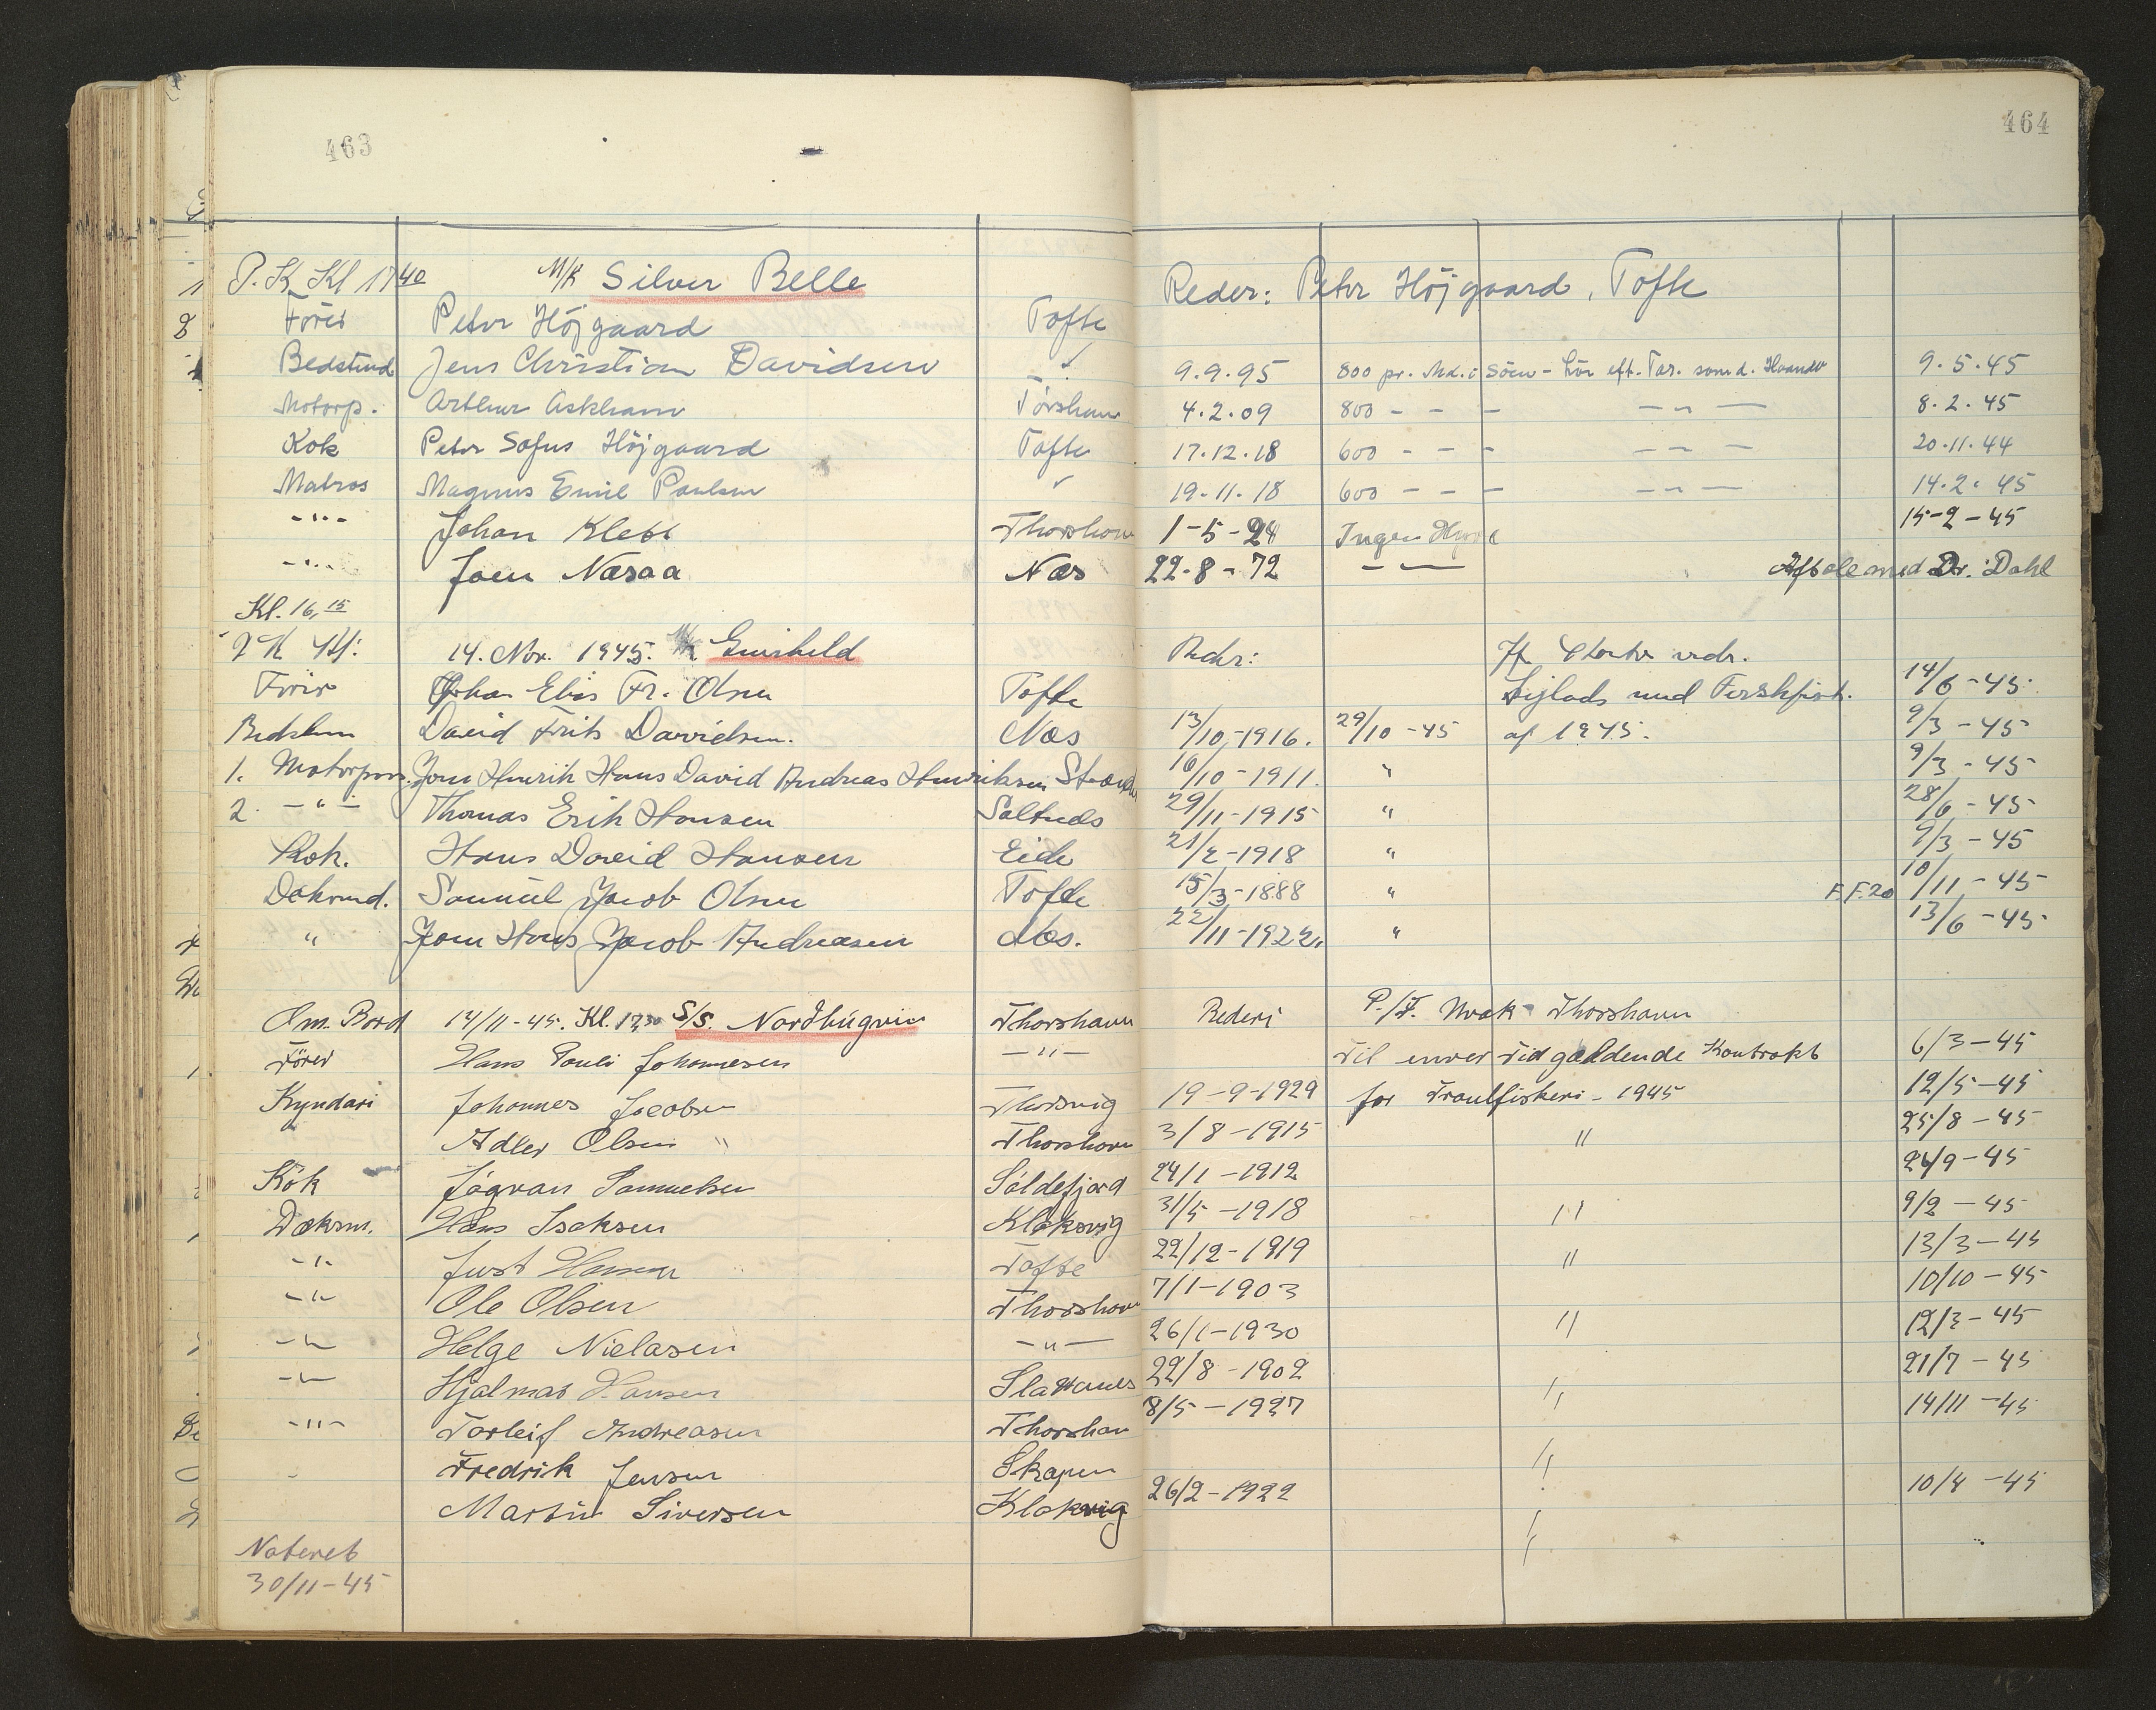 463
464
P. K. Kl 17 40 M/K Silver Belle Reder: Peter Höjgaard, Tofte
Förer Peter Höjgaard Tofte
Bedstmd Jens Christian Davidsen 9.9.95 800 pr. Md. i Söen - Lön eft. Tar. som d. Haand 9.5.45
Motorp. Arthur Askham Törshavn 4.2.09 800 - - - - " - 8.2.45
Kok Peter Sofus Höjgaard Tofte 17.12.18 600 - - - - " - 20.11.44
Matros Magnus Emil Poulsen 19.11.18 600 - - - - " - 14.2.45
- " - Johan Klett Thorshavn 1-5-24 Ingen Hyre 15-2-45
- " - Joen Næsaa Næs 22-8-72 - " - Aftale med Dr. Dahl
Kl. 16,15
14. Nov. 1945. M/K Gunhild Reder:
Förer Elias Fr. Olsen Tofte 14/6-45
Bedstem David Frits Davidsen. Næs 13/10-1916. 29/10-45 af 1945. 9/3-45
1. Motorpas. Joen Hendrik Hans David Andreas Henriksen 16/10-1911. " 9/3-45
2. - " - Thomas Erik Hansen Saltnes 29/11-1915 " 28/6-45
Kok. Hans David Hansen Eide 21/2-1918 " 9/3-45
Daksmd. Samuel Jacob Olsen Tofte 15/3-1888 " F.F.20 10/11-45
" Joen Hans Jacob Andreasen Næs. 22/11-1922 " 13/6-45
Om. Bord 14/11-45. Kl. 17,30 S/S. Nordhúgvin Thorshavn Rederi P./F. Thorshavn
Förer Hans Pauli Johannesen - " - Til enver Tid gældende Kontrakt 6/3-45
Kyndari Johannes Jacobsen Thorsvig 19-9-1929 for Traulfiskeri - 1945 12/5-45
Adler Olsen " Thorshavn 3/8-1915 " 25/8-45
Kok Jógvan Samuelsen Söldefjord 24/1-1912 24/9-45
Dæksm. Hans Isaksen Klaksvig 31/5-1918 " 9/2-45
- " - Just Hansen Tofte 22/12-1919 " 13/3-45
- " - Ole Olsen Thorshavn 7/1-1903 10/10-45
- " - Helge Nielasen - " - 26/1-1930 " 12/3-45
- " - Hjalmar Hansen Slattanes 22/8-1902 21/7-45
- " - Torleif Andreasen Thorshavn 8/5-1927 " 14/11-45
Fredrik Jensen Skapen "
Martin Siversen Klaksvig 26/2-1922 10/4-45
Noteret
30/11-45